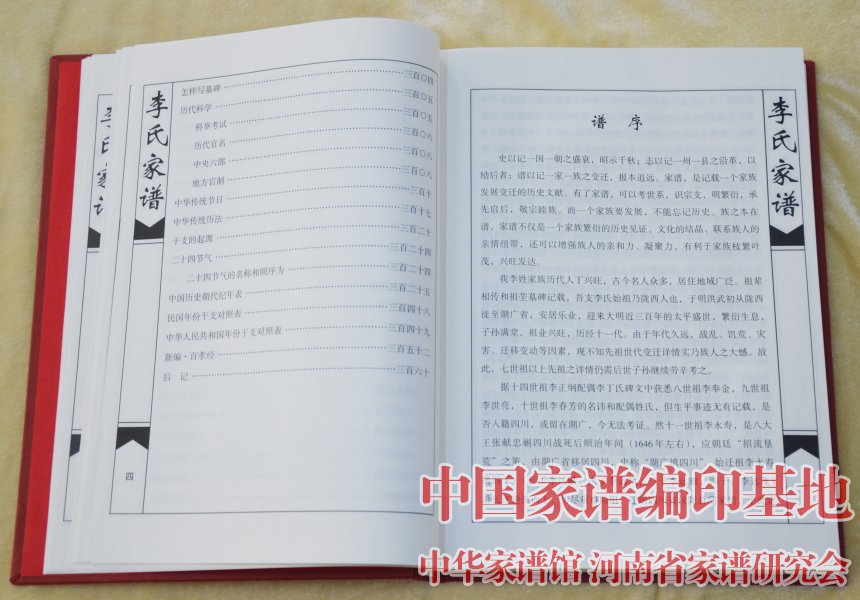 李氏家谱
李氏家谱
怎样写墓碑 三百〇四
历代科学 三百〇五
科举考试 三百〇五
历代官名 三百〇六
中央六部 三百〇八
地方官制 三百〇八
中华传统节日 三百十
中华传统历法 三百十七
干支的起源 三百二十
二十四节气 三百二十四
二十四节气的名称和顺序为 三百二十四
中国历史朝代纪年表 三百二十五
民国年份干支对照表 三百四十八
中华人民共和国年份干支对照表 三百四十九
新编·百孝经 三百五十二
后 记 三百六十
四
李氏家谱
谱 序
史以记一国一朝之盛衰，昭示千秋；志以记一州一县之沿革，以
励后者；谱以记一家一族之变迁，报本追远。家谱，是记载一个家族
发展变迁的历史文献。有了家谱，可以考世系，识宗支，明繁衍，承
先启后，敬宗睦族。而一个家族要发展，不能忘记历史。族之本在
谱，家谱不仅是一个家族繁衍的历史见证、文化的结晶、联系族人的
亲情纽带，还可以增强族人的亲和力、凝聚力，有利于家族枝繁叶
茂，兴旺发达。
我李姓家族历代人丁兴旺，古今名人众多，居住地域广泛。祖辈
相传和祖茔墓碑记载，吾支李氏始祖乃陇西人也，于明洪武初从陇西
徙至湖广省，安居乐业，迎来大明近三百年的太平盛世，繁衍生息，
子孙满堂，祖业兴旺，历经十一代。由于年代久远，战乱、饥荒、灾
害、迁移变动等因素，现不知先祖世代变迁详情实乃族人之大憾。故
此，七世祖以上先祖之详情仍需后世子孙继续劳辛考之。
据十四世祖李正纲配偶李丁氏碑文中获悉八世祖李奉金，九世祖
李世亮，十世祖李春芳的名讳和配偶姓氏，但生平事迹无有记载，是
否入籍四川，或留在湖广，今无法考证。然十一世祖李永寿，是八大
王张献忠剿四川战死后顺治年间（1646年左右），应朝廷“招流垦
荒”之策，由湖广省移居四川，史称“湖广填四川”，始迁祖李永寿
中国家谱编印基地
中华家谱馆 河南省家谱研究会